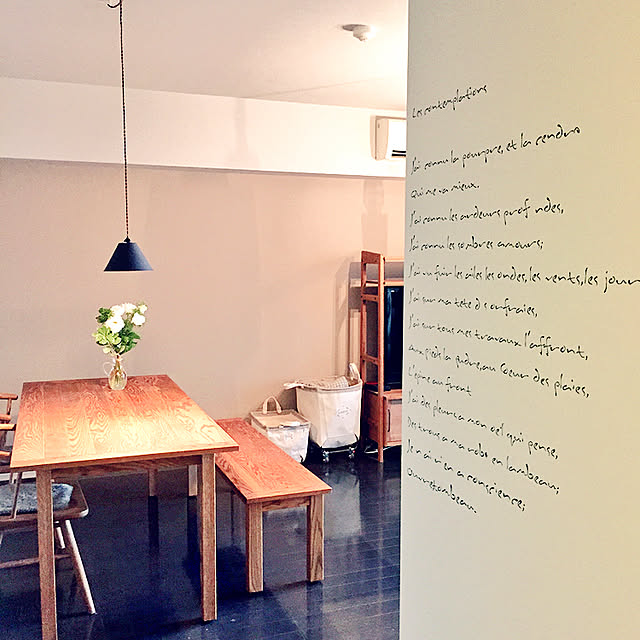 Les contemplations
J'ai connu la pourpre, et la cendre
Qui me va mieux.
J'ai connu les ardeurs prof ndes,
J'ai connu les sombres amours;
J'ai vu fuir les ailes, les ondes, les vents, les jour
J'ai sur ma tête d s orfraies,
J'ai sur tous mes travaux l'affront,
aux pieds la poudre, au coeur des plaies,
L'épine au front.
J'ai des pleurs a mon oeil qui pense,
Des trous a ma robe en lambeau;
Je n'ai rien a conscience;
Ouvre tombeau.